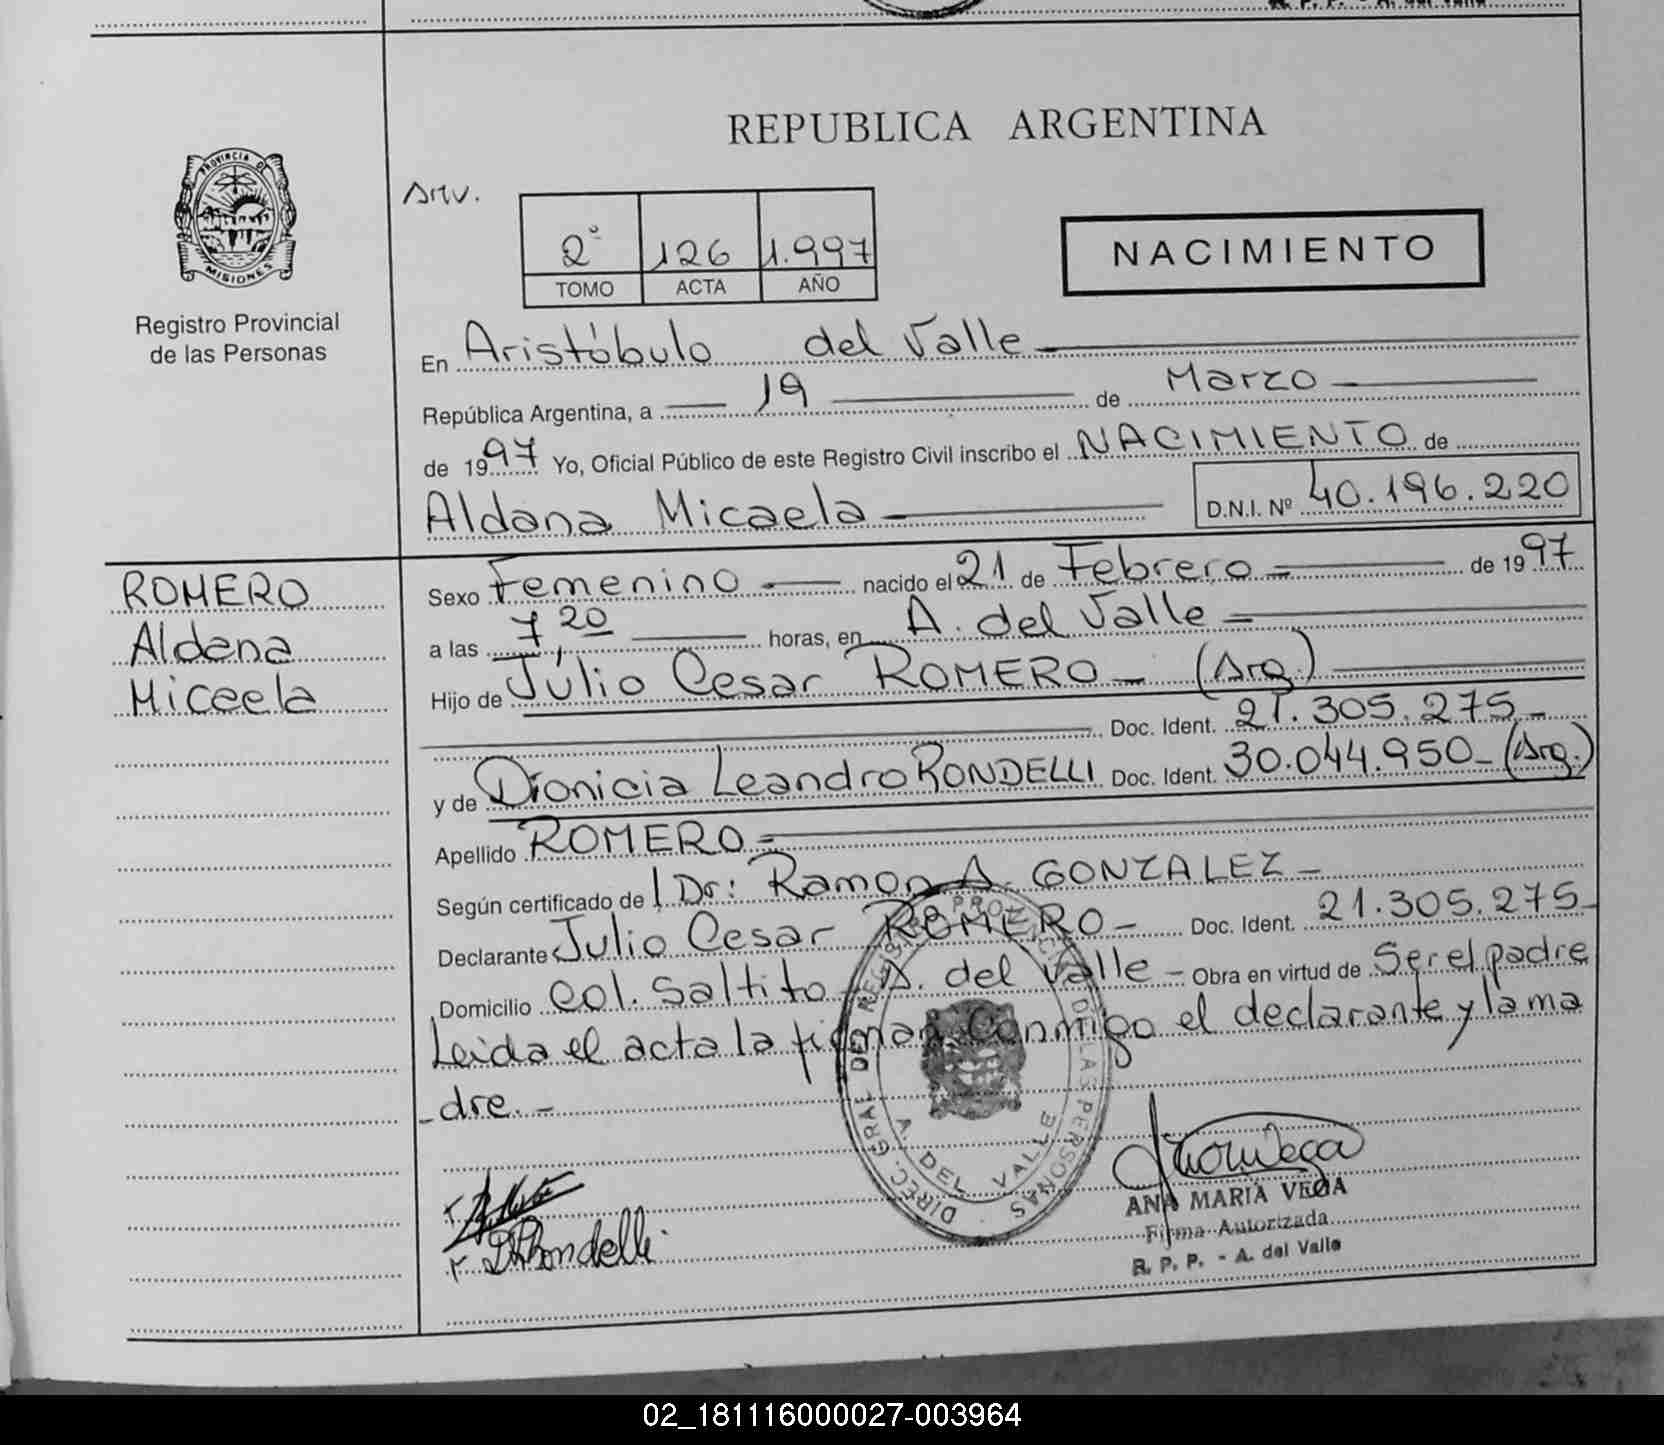 R. P. P. - A. del Valle
REPUBLICA ARGENTINA
PROVINCIA DE
MISIONES
Registro Provincial
de las Personas
2° 126 1.997
TOMO ACTA AÑO
NACIMIENTO
En Aristóbulo del Valle
República Argentina, a 19 de Marzo
de 1997 Yo, Oficial Público de este Registro Civil inscribo el NACIMIENTO de
Aldana Micaela D.N.I. Nº 40.196.220
ROMERO
Aldana
Micaela
Sexo Femenino nacido el 21 de Febrero de 1997
a las 7,20 horas, en A. del Valle
Hijo de Julio Cesar ROMERO (Arg.)
Doc. Ident. 21.305.275
y de Dionicia Leandro RONDELLI Doc. Ident. 30.044.950 (Arg.)
Apellido ROMERO
Según certificado de l Dr: Ramon A. GONZALEZ
Declarante Julio Cesar ROMERO Doc. Ident. 21.305.275
Domicilio Col. Saltito A. del Valle Obra en virtud de Ser el padre
Leida el acta la firman conmigo el declarante y la ma
dre.
DIREC. GRAL DEL REGISTRO PROVINCIAL DE LAS PERSONAS
A. DEL VALLE
D Rondelli
ANA MARIA VEGA
Firma Autorizada
R. P. P. - A. del Valle
02_181116000027-003964